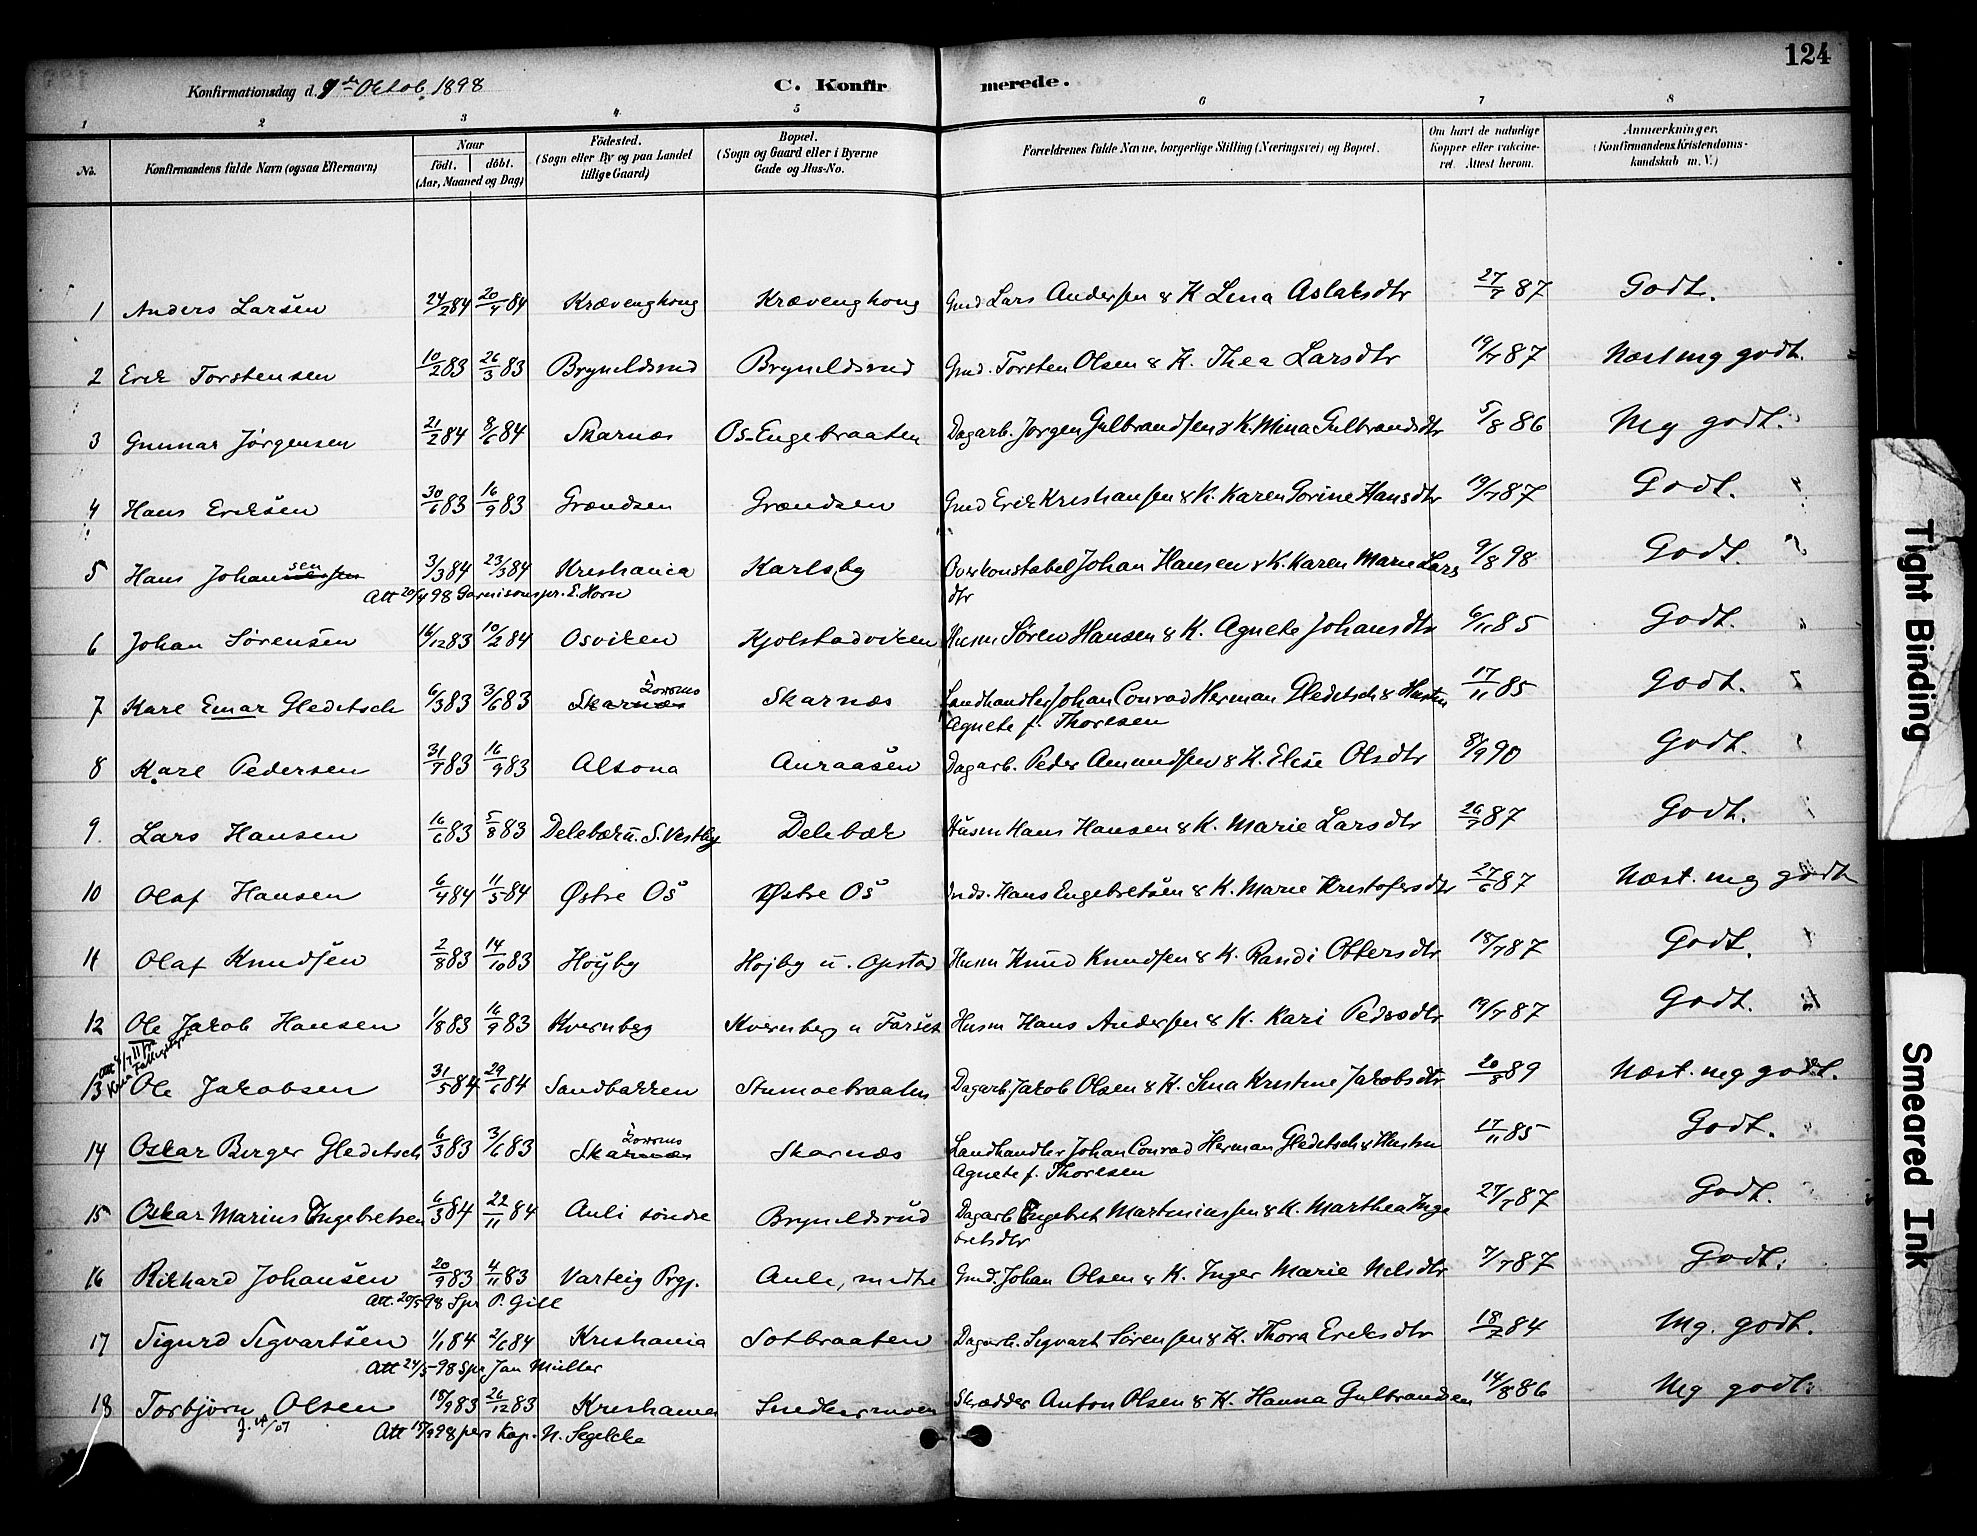 124
Konfirmationsdag d. 9de Oktob. 1898 C. Konfirmerede.
1 2 3 4 5 6 7 8
No. Konfirmandens fulde Navn (ogsaa Efternavn) Naar födt. döbt. (Aar, Maaned og Dag) Födested. (Sogn eller By og paa Landet tillige Gaard) Bopæl. (Sogn og Gaard eller i Byerne Gade og Hus-No. Forældrenes fulde Navne, borgerlige Stilling (Næringsvei) og Bopæl. Om havt de naturlige Kopper eller vakcineret. Attest herom. Anmærkninger. (Konfirmandens Kristendomskundskab m. V.)
1 Anders Larsen 24/2 84 20/4 84 Krævenghoug Krævenghoug Gmd Lars Andersen & K Lina Aslaksdtr 27/7 87 Godt.
2 Erik Torstensen 10/2 83 26/3 83 Bryneldsrud Bryneldsrud Gmd. Torsten Olsen & K. Thea Larsdtr 19/7 87 Næst mg godt.
3 Gunnar Jörgensen 21/2 84 8/6 84 Skarnæs Os-Engebraaten Dagarb. Jörgen Gulbrandsen & K. Mina Gulbrandsdtr 5/8 86 Mg godt.
4 Hans Eriksen 30/6 83 16/9 83 Grændsen Grændsen Gmd Erik Kristiansen & K. Karen Gorine Hansdtr 19/7 87 Godt.
5 Hans Johansen 3/3 84 23/3 84 Kristiania Karlsby Overkonstabel Johan Hansen & K. Karen Marie Lars 9/8 98 Godt.
Att 20/4 98 Garnisonspr. E. Horn dtr
6 Johan Sörensen 16/12 83 10/2 84 Osviken Kjolstadviken Husm Sören Hansen & K. Agnete Johansdtr 6/11 85 Godt.
7 Karl Emar Gleditsch 6/3 83 3/6 83 Skarnæs Skarnæs Landhandler Johan Conrad Herman Gleditsch & Hustru 17/11 85 Godt.
Agnete f. Thoresen
8 Karl Pedersen 31/7 83 16/9 83 Alsona Auraasen Dagarb. Peder Amundsen & K. Elise Olsdtr 8/9 90 Godt.
9. Lars Hansen 16/6 83 5/8 83 Delebæk u. S. Vestby Delebæk Husm Hans Hansen & K. Marie Larsdtr 26/7 87 Godt.
10 Olaf Hansen 6/4 84 11/5 84 Østre Os Østre Os Inds. Hans Engebretsen & K. Marie Kristofersdtr 27/6 87 Næst. mg godt
11 Olaf Knudsen 2/8 83 14/10 83 Höyby Hojby u. Opstad Husm Knud Knudsen & K. Randi Ottersdtr 18/7 87 Godt.
12 Ole Jakob Hansen 1/8 83 16/9 83 Kvernbeg Kvernberg u Farset Husm Hans Andersen & K. Kari Pedersdtr 19/7 87 Godt.
13 Ole Jakobsen 31/5 84 29/6 84 Sandbakken Stumoebraaten Dagarb. Jakob Olsen & K. Lina Kristine Jakobsdtr 20/8 89 Næst. mg godt.
14 Oskar Berger Gleditsch 6/3 83 3/6 83 Skarnæs Skarnæs Landhandler Johan Conrad Herman Gleditsch & Hustru 17/11 85 Godt.
Agnete f. Thoresen
15 Oskar Marius Engebretsen 6/3 84 22/11 84 Auli söndre Bryneldsrud Dagarb Engebret Martiniussen & K. Marthea Inge 27/7 87 Godt.
bretsdtr
16 Rikhard Johansen 20/9 83 4/11 83 Varteig Prgj. Aule, midtre Gmd. Johan Olsen & K. Inger Marie Nilsdtr 7/7 87 Godt.
Att. 20/5 98 Spr P. Gill
17 Sigurd Sigvartsen 1/1 84 2/6 84 Kristiania Sotbraaten Dagarb. Sigvart Sörensen & K. Thora Eriksdtr 18/7 84 Mg. godt.
Att 24/5-98 Spr Jan Müller
18 Torbjörn Olsen 18/9 83 26/12 83 Kristiania Snedkermoen Skrædder Anton Olsen & K. Hanna Gulbrandsen 14/8 86 Mg godt.
Att 15/9 98 pers Kap. N. Segelcke
Tight Binding
Smeared Ink